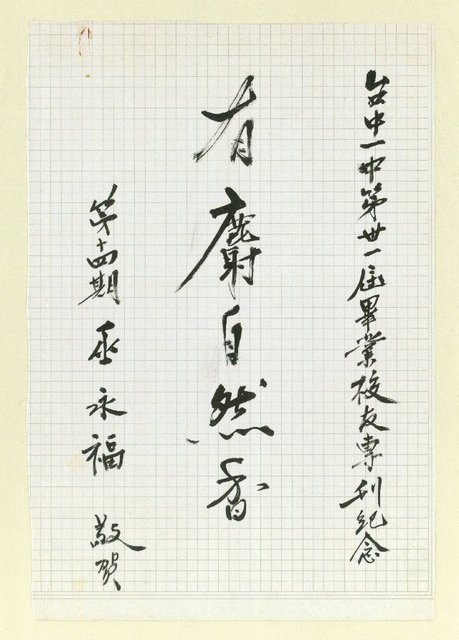 台中一中第卅一屆畢業校友專刊紀念
有麝自然香
第十四期 巫永福 敬賀